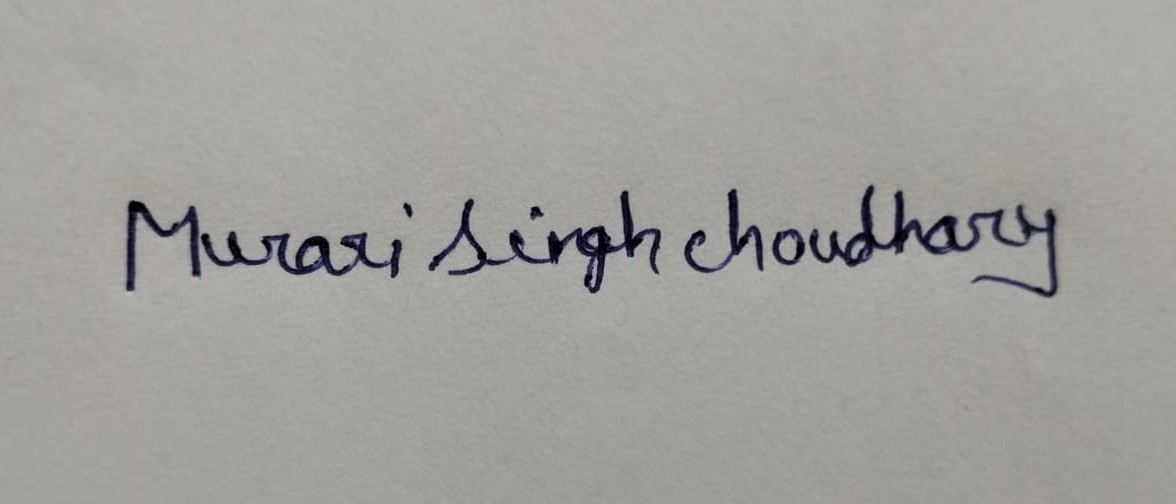 Murari Singh Choudhary